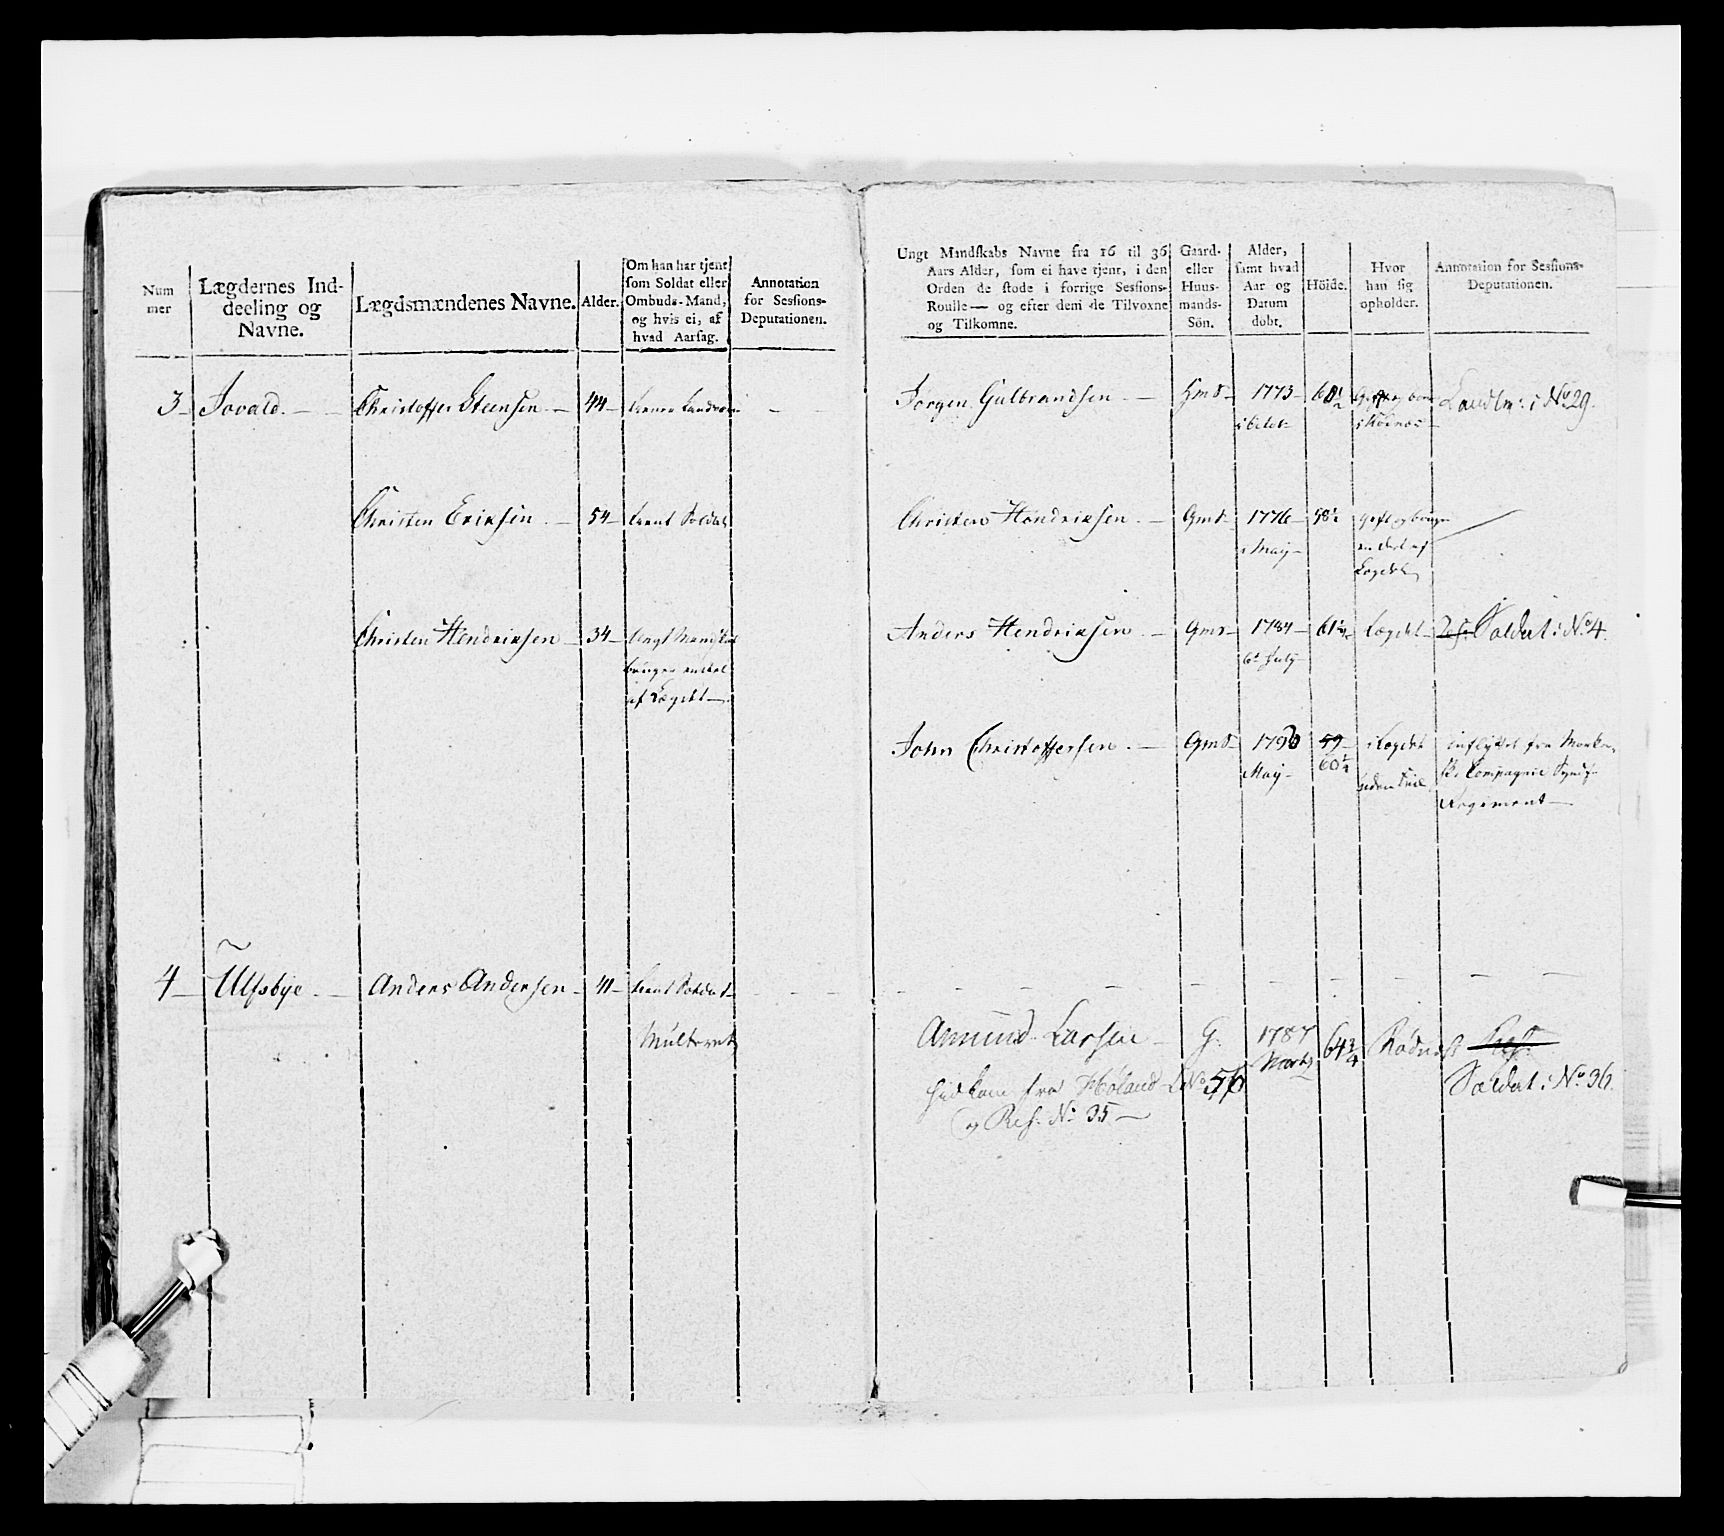 Num
mer
Lægdernes Ind-
deeling og
Navne.
Lægdsmændenes Navne.
Alder.
Om han har tjent
som Soldat eller
Ombuds-Mand,
og hvis ei, af
hvad Aarsag.
Annotation
for Sessions-
Deputationen.
3 Jovald.
Christoffer Steensen
44
Christen Eriksen
54
tient Soldat
Christen Hendriksen
34
Ungt Mandskab
bruger en deel
af Lægdet
4 Ulfsbye
Anders Andersen
41
tient Soldat
Multeret
Ungt Mandskabs Navne fra 16 til 36
Aars Alder, som ei have tjent, i den
Orden de stode i forrige Sessions-
Roulle — og efter dem de Tilvoxne
og Tilkomne.
Gaard-
eller
Huus-
mands-
Sön.
Alder,
samt hvad
Aar og
Datum
döbt.
Höide.
Hvor
han sig
opholder.
Annotation for Sessions-
Deputationen.
Jorgen Gulbrandsen
HmS
1773
60½
Landv: i No 29.
Christen Hendriksen
GmS
1776
May
Lægdet
Anders Hendriksen
GmS
1784
6t July
61
Lægdet
Soldat i No 4.
John Christoffersen
GmS
1790
May
59
60½
i Lægdet
indflyttet fra
Compagnie
Regiment
Amund Larsen
G.
1787
Marts
64¾
Rödnæs
Res:
Soldat i No 36.
hidkom fra Höland L No 56
og Res. No 35